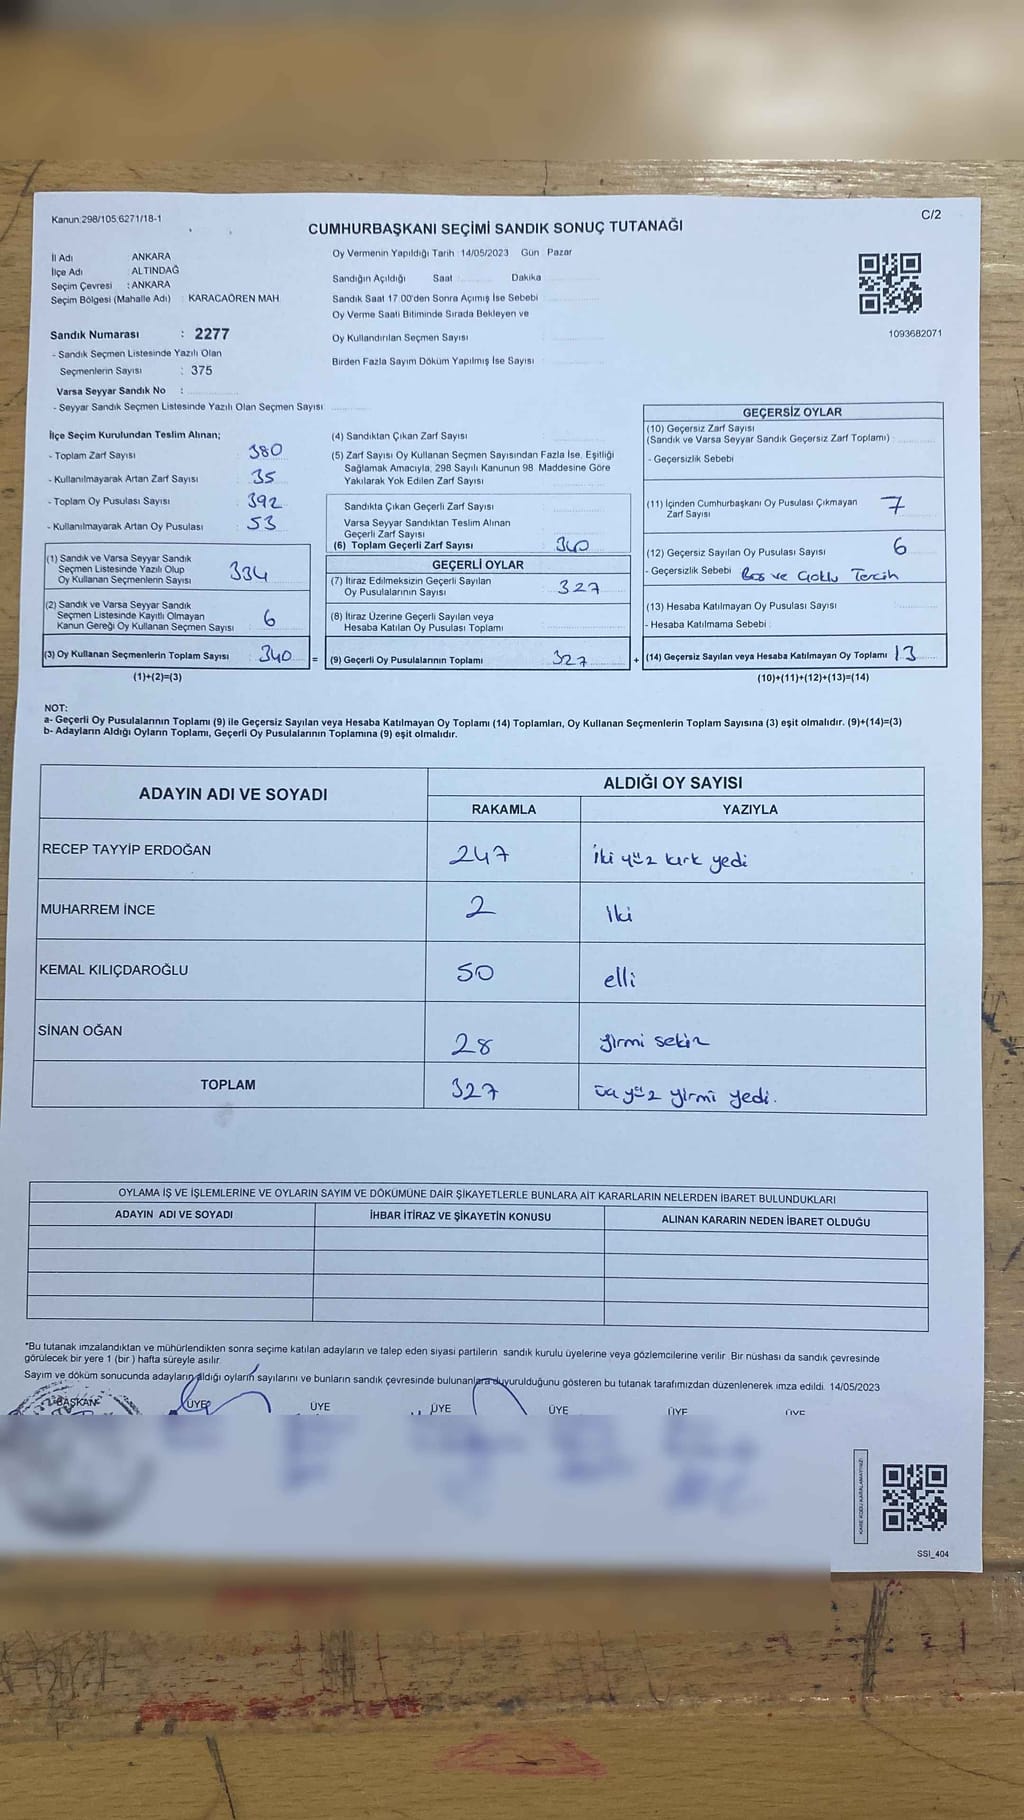 Kanun:298/105,6271/18-1
C/2
CUMHURBAŞKANI SEÇİMİ SANDIK SONUÇ TUTANAĞI
İl Adı ANKARA
İlçe Adı ALTINDAĞ
Seçim Çevresi : ANKARA
Seçim Bölgesi (Mahalle Adı) : KARACAÖREN MAH.
Sandık Numarası : 2277
- Sandık Seçmen Listesinde Yazılı Olan
Seçmenlerin Sayısı : 375
Varsa Seyyar Sandık No :
- Seyyar Sandık Seçmen Listesinde Yazılı Olan Seçmen Sayısı
Oy Vermenin Yapıldığı Tarih :14/05/2023 Gün Pazar
Sandığın Açıldığı Saat Dakika
Sandık Saat 17.00'den Sonra Açımış İse Sebebi
Oy Verme Saati Bitiminde Sırada Bekleyen ve
Oy Kullandırılan Seçmen Sayısı
Birden Fazla Sayım Döküm Yapılmış İse Sayısı
1093682071
İlçe Seçim Kurulundan Teslim Alınan;
- Toplam Zarf Sayısı 380
- Kullanılmayarak Artan Zarf Sayısı 35
- Toplam Oy Pusulası Sayısı 392
- Kullanılmayarak Artan Oy Pusulası 53
(1) Sandık ve Varsa Seyyar Sandık
Seçmen Listesinde Yazılı Olup
Oy Kullanan Seçmenlerin Sayısı 334
(2) Sandık ve Varsa Seyyar Sandık
Seçmen Listesinde Kayıtlı Olmayan
Kanun Gereği Oy Kullanan Seçmen Sayısı 6
(3) Oy Kullanan Seçmenlerin Toplam Sayısı 340 =
(1)+(2)=(3)
(4) Sandıktan Çıkan Zarf Sayısı
(5) Zarf Sayısı Oy Kullanan Seçmen Sayısından Fazla İse, Eşitliği
Sağlamak Amacıyla, 298 Sayılı Kanunun 98. Maddesine Göre
Yakılarak Yok Edilen Zarf Sayısı
Sandıkta Çıkan Geçerli Zarf Sayısı
Varsa Seyyar Sandıktan Teslim Alınan
Geçerli Zarf Sayısı
(6) Toplam Geçerli Zarf Sayısı 340
GEÇERLİ OYLAR
(7) İtiraz Edilmeksizin Geçerli Sayılan
Oy Pusulalarının Sayısı 327
(8) İtiraz Üzerine Geçerli Sayılan veya
Hesaba Katılan Oy Pusulası Toplamı
(9) Geçerli Oy Pusulalarının Toplamı 327 +
GEÇERSİZ OYLAR
(10) Geçersiz Zarf Sayısı
(Sandık ve Varsa Seyyar Sandık Geçersiz Zarf Toplamı)
- Geçersizlik Sebebi
(11) İçinden Cumhurbaşkanı Oy Pusulası Çıkmayan
Zarf Sayısı 7
(12) Geçersiz Sayılan Oy Pusulası Sayısı 6
- Geçersizlik Sebebi Boş ve Çoklu Tercih
(13) Hesaba Katılmayan Oy Pusulası Sayısı
- Hesaba Katılmama Sebebi
(14) Geçersiz Sayılan veya Hesaba Katılmayan Oy Toplamı 13
(10)+(11)+(12)+(13)=(14)
NOT:
a- Geçerli Oy Pusulalarının Toplamı (9) ile Geçersiz Sayılan veya Hesaba Katılmayan Oy Toplamı (14) Toplamları, Oy Kullanan Seçmenlerin Toplam Sayısına (3) eşit olmalıdır. (9)+(14)=(3)
b- Adayların Aldığı Oyların Toplamı, Geçerli Oy Pusulalarının Toplamına (9) eşit olmalıdır.
ADAYIN ADI VE SOYADI
ALDIĞI OY SAYISI
RAKAMLA YAZIYLA
RECEP TAYYİP ERDOĞAN 247 iki yüz kırk yedi
MUHARREM İNCE 2 iki
KEMAL KILIÇDAROĞLU 50 elli
SİNAN OĞAN 28 yirmi sekiz
TOPLAM 327 üç yüz yirmi yedi.
OYLAMA İŞ VE İŞLEMLERİNE VE OYLARIN SAYIM VE DÖKÜMÜNE DAİR ŞİKAYETLERLE BUNLARA AİT KARARLARIN NELERDEN İBARET BULUNDUKLARI
ADAYIN ADI VE SOYADI İHBAR İTİRAZ VE ŞİKAYETİN KONUSU ALINAN KARARIN NEDEN İBARET OLDUĞU
*Bu tutanak imzalandıktan ve mühürlendikten sonra seçime katılan adayların ve talep eden siyasi partilerin sandık kurulu üyelerine veya gözlemcilerine verilir. Bir nüshası da sandık çevresinde
görülecek bir yere 1 (bir ) hafta süreyle asılır.
Sayım ve döküm sonucunda adayların aldığı oyların sayılarını ve bunların sandık çevresinde bulunanlara duyurulduğunu gösteren bu tutanak tarafımızdan düzenlenerek imza edildi. 14/05/2023
BAŞKAN ÜYE ÜYE ÜYE ÜYE ÜYE ÜYE
KARE KODU KARALAMAYINIZ!
SSI_404